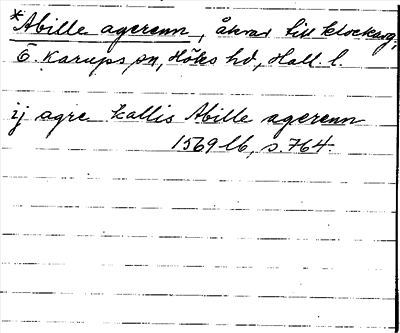 *Abille agerenn, åkrar till klockareg,
Ö. Karups sn, Höks hd, Hall. l.
ij agre kallis Abille agerenn
1569 lb, s. 764.